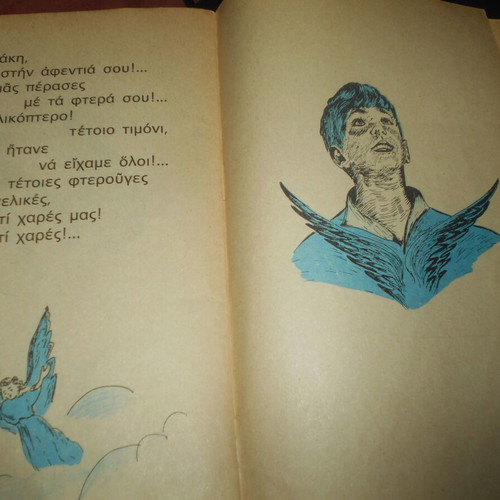 άκη,
στήν ἀφεντιά σου!...
μᾶς πέρασες
μέ τά φτερά σου!...
λικόπτερο!
τέτοιο τιμόνι,
ἤτανε
νά εἴχαμε ὅλοι!...
τέτοιες φτεροῦγες
γελικές,
τί χαρές μας!
τί χαρές!...